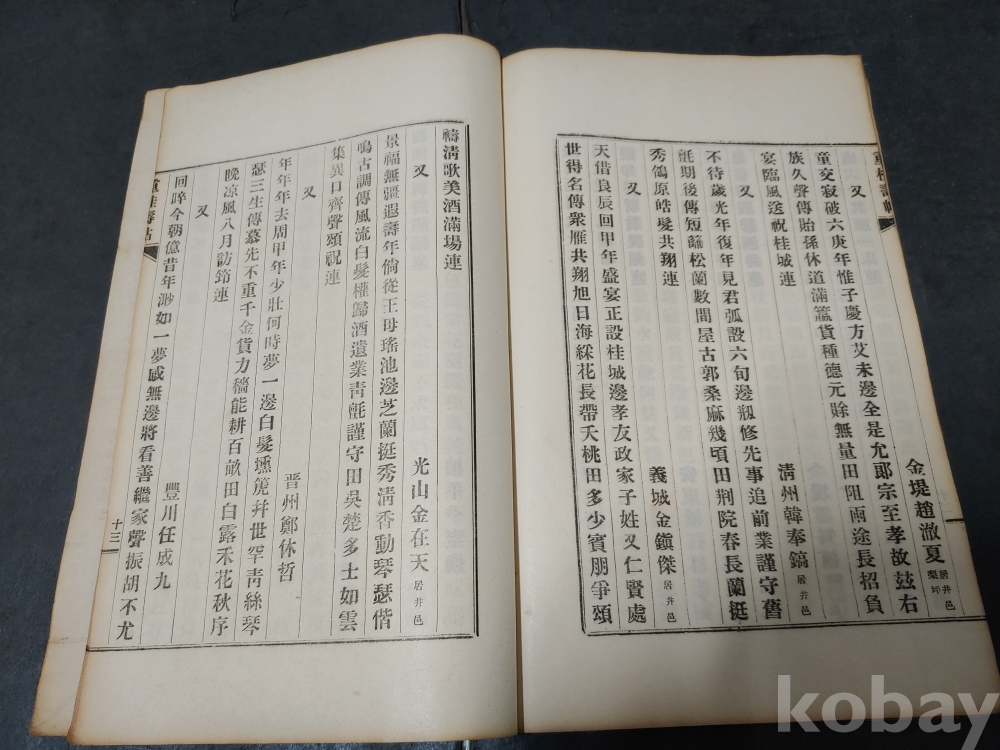 又
金堤趙澈夏 居井邑
梨坪
童交寂破六庚年惟子慶方艾未邊全是允郞宗至孝故玆右
族久聲傳貽孫休道滿籝貨種德元賖無量田阻雨途長招負
宴臨風送祝桂城連
又
淸州韓奉鎬 居井邑
不待歲光年復年見君弧設六旬邊刱修先事追前業謹守舊
氈期後傳短籬松蘭數間屋古郭桑麻幾頃田荆院春長蘭挺
秀鴿原皓髮共翔連
又
義城金鎭傑 居井邑
天借良辰回甲年盛宴正設桂城邊孝友政家子姓又仁賢處
世得名傳衆雁共翔旭日海綵花長帶夭桃田多少賓朋爭頌
禱淸歌美酒滿場連
又
光山金在天 居井邑
景福無疆遐壽年倘從王母瑤池邊芝蘭挺秀淸香動琴瑟偕
鳴古調傳風流白髮權歸酒遺業靑氈謹守田吳楚多士如雲
集異口齊聲頌祝連
又
晋州鄭休哲
年年年去周甲年少壯何時夢一邊白髮壎箎幷世罕靑絲琴
瑟三生傳慕先不重千金貨力穡能耕百畝田白露禾花秋序
晚凉風八月訪筇連
又
豐川任成九
回晬今朝億昔年渺如一夢感無邊將看善繼家聲振胡不尤
十三
kobay